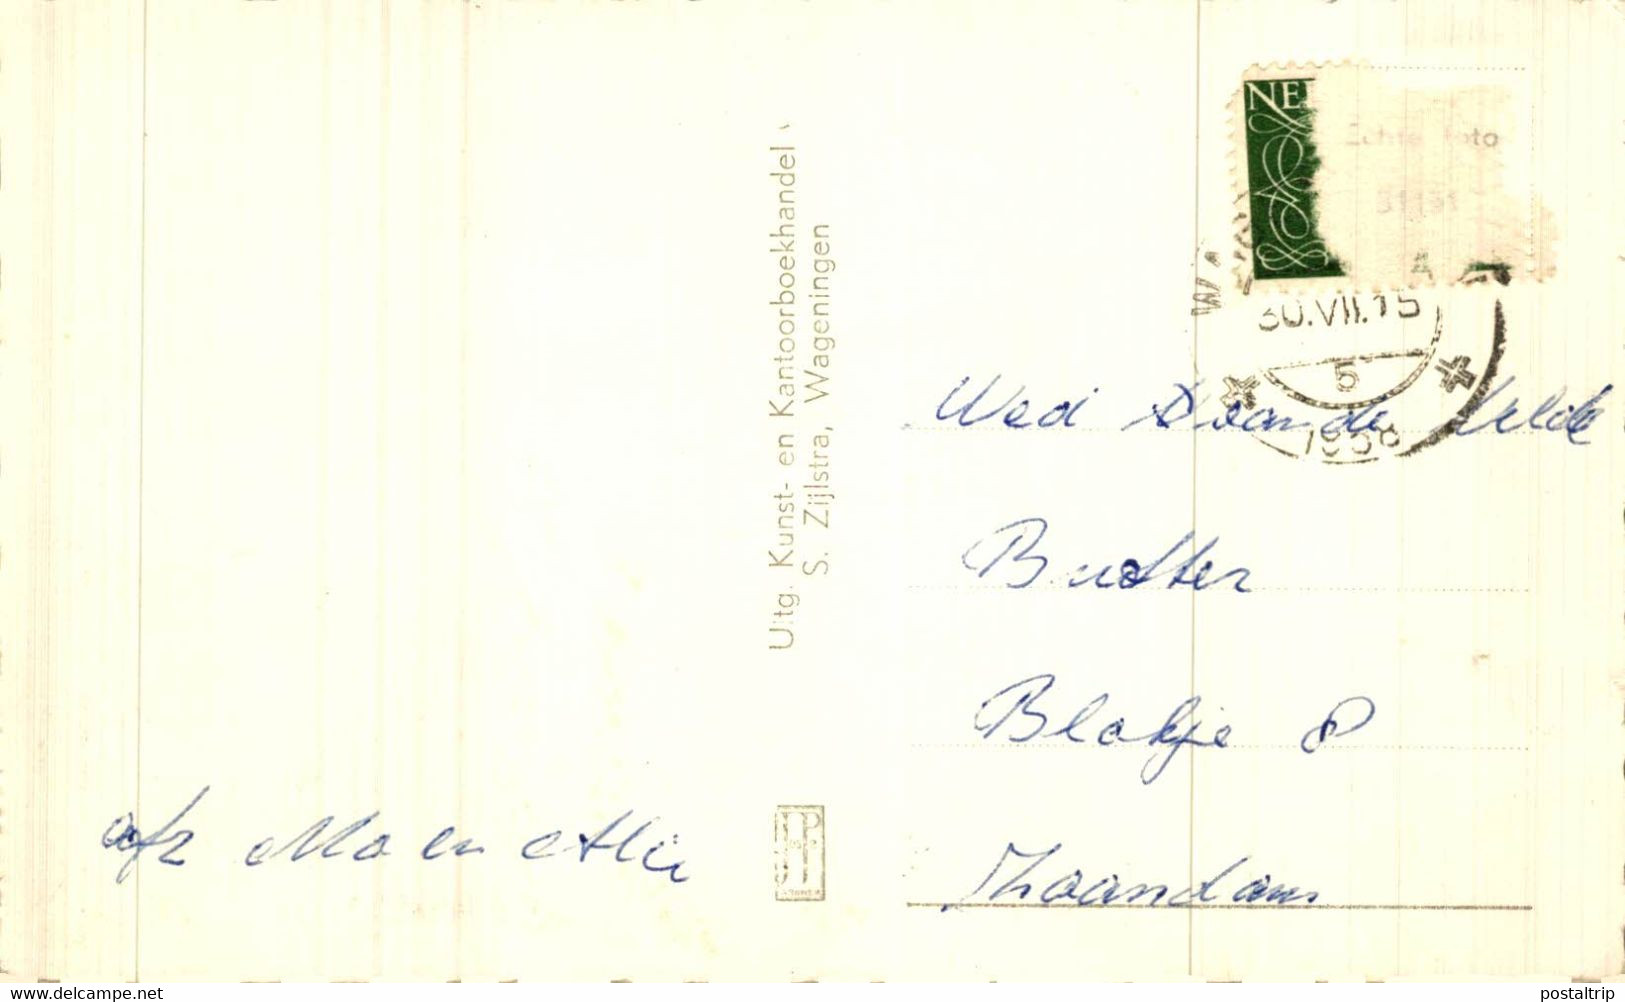 Uitg. Kunst- en Kantoorboekhandel
S. Zijlstra, Wageningen
NE
Echte foto
30.VII.15
5
1958
Wed
Butter
Blokje 8
Zaandam
afz Ma en Alie
www.delcampe.net
postaltrip